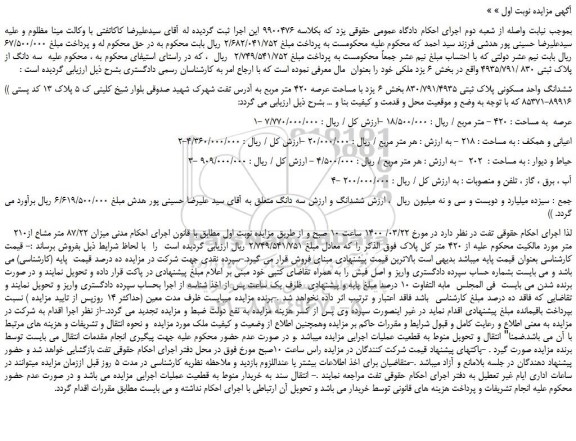 آگهی مزایده نوبت اول » »
بموجب نیابت واصله از شعبه دوم اجرای احکام دادگاه عمومی حقوقی یزد که بکلاسه ۹۹۰۰۴۷۶ این اجرا ثبت گردیده له آقای سیدعلیرضا کاکاتفتی با وکالت مینا مظلوم و علیه
سیدعلیرضا حسینی پور هدشی فرزند سید احمد که محکوم علیه محکومست به پرداخت مبلغ ۲/۶۸۲/۰۴۱/۷۵۲ ریال بابت محکوم به در حق محکوم له و پرداخت مبلغ ۶۷/۵۰۰/۰۰۰
ریال بابت نیم عشر دولتی که با احتساب مبلغ نیم عشر جمعاً محکومست به پرداخت مبلغ ۲/۷۴۹/۵۴۱/۷۵۲ ریال ، که در راستای استیفای محکوم به ، محکوم علیه سه دانگ از
پلاک ثبتی ۸۳۰ /۴۹۳۵/۷۹۱ واقع در بخش ۶ یزد ملکی خود را بعنوان مال معرفی نموده است که با ارجاع امر به کارشناسان رسمی دادگستری بشرح ذیل ارزیابی گردیده است :
ششدانگ واحد مسکونی پلاک ثبتی ۸۳۰/۷۹۱/۴۹۳۵ بخش ۶ یزد با مساحت عرصه ۴۲۰ متر مربع به آدرس تفت شهرک شهید صدوقی بلوار شیخ کلینی ک ۵ پلاک ۱۳ کد پستی ))
۸۹۹۱۶-۸۵۳۷۱ که با توجه به وضع و موقعیت محل و قدمت و کیفیت بنا و ... بشرح ذیل ارزیابی می گردد:
عرصه به مساحت : ۴۲۰ - متر مربع / ریال : ۱۸/۵۰۰/۰۰۰ –ارزش کل / ریال : ۷/۷۷۰/۰۰۰/۰۰۰ –۱
اعیانی و همکف : به مساحت : ۲۱۸ - به ارزش : هر متر مربع / ریال : ۲۰/۰۰۰/۰۰۰ –ارزش کل / ریال : ۴/۳۶۰/۰۰۰/۰۰۰–۲
حیاط و دیوار : به مساحت : ۲۰۲ - به ارزش : هر متر مربع / ریال : ۴/۵۰۰/۰۰۰ –ارزش کل / ریال : ۹۰۹/۰۰۰/۰۰۰ –۳
آب ، برق ، گاز ، تلفن و منصوبات : به ارزش کل / ریال : ۲۰۰/۰۰۰/۰۰۰ –۴
جمع : سیزده میلیارد و دویست و سی و نه میلیون ریال ، ارزش ششدانگ و ارزش سه دانگ متعلق به آقای سید علیرضا حسینی پور هدش مبلغ ۶/۶۱۹/۵۰۰/۰۰۰ ریال برآورد می
گردد ))
لذا اجرای احکام حقوقی تفت در نظر دارد در مورخ ۰۳/۲۲/ ۱۴۰۰ ساعت ۱۰ صبح و از طریق مزایده نوبت اول مطابق با قانون اجرای احکام مدنی میزان ۸۷/۲۲ متر مشاع از۲۱۰
متر مورد مالکیت محکوم علیه از ۴۲۰ متر کل پلاک فوق الذکر را که معادل مبلغ ۲/۷۴۹/۵۴۱/۷۵۱ ریال ارزیابی گردیده است را با لحاظ شرایط ذیل بفروش برساند :– قیمت
کارشناسی بعنوان قیمت پایه میباشد بدیهی است بالاترین قیمت پیشنهادی مبنای فروش قرار می گیرد –سپرده نقدی جهت شرکت در مزایده ده درصد قیمت پایه (کارشناسی) می
باشد و می بایست بشماره حساب سپرده دادگستری واریز و اصل فیش را به همراه تقاضای کتبی خود مبنی بر اعلام مبلغ پیشنهادی در پاکت قرار داده و تحویل نمایند و در صورت
برنده شدن می بایست فی المجلس مابه التفاوت ۱۰ درصد مبلغ پایه و پیشنهادی ظرف یک ساعت پس از اخذ شناسه از اجرا بحساب سپرده دادگستری واریز و تحویل نمایند و
تقاضایی که فاقد ده درصد مبلغ کارشناسی باشد فاقد اعتبار و ترتیب اثر داده نخواهد شد –برنده مزایده میبایست ظرف مدت معین (حداکثر ۱۴ روزپس از تایید مزایده ) نسبت
بپرداخت باقیمانده مبلغ پیشنهادی اقدام نماید در غیر اینصورت سپرده وی پس از کسر هزینه مزایده به نفع دولت ضبط و مزایده تجدید می گردد.–از نظر اجرا اقدام به شرکت در
مزایده به معنی اطلاع و رعایت کامل و قبول شرایط و مقررات حاکم بر مزایده وهمچنین اطلاع از وضعیت و کیفیت ملک مورد مزایده و نحوه انتقال و تشریفات و هزینه های مرتبط
با آن می باشد.ضمنا" انتقال و تحویل منوط به قطعیت عملیات اجرایی مزایده میباشد و در صورت عدم حضور محکوم علیه جهت پیگیری انجام مقدمات انتقال می بایست توسط
برنده مزایده صورت گیرد . –پاکتهای پیشنهاد قیمت شرکت کنندگان در مزایده راس ساعت ۱۰صبح مورخ فوق در محل دفتر اجرای احکام حقوقی تفت بازگشایی خواهد شد و حضور
پیشنهاد دهندگان در جلسه بلامانع و آزاد میباشد –متقاضیان برای اخذ اطلاعات بیشتر یا عنداللزوم بازدید و ملاحظه نظریه کارشناسی در مدت ۵ روز قبل اززمان مزایده میتوانند در
ساعات اداری ایام غیر تعطیل به دفتر اجرای احکام حقوقی تفت مراجعه نمایند .– انتقال سند به خریدار منوط به قطعیت عملیات اجرایی مزایده می باشد و در صورت عدم حضور
محکوم علیه انجام تشریفات و پرداخت هزینه های قانونی توسط خریدار می باشد و تحویل آن ارتباطی با اجرای احکام نداشته و می بایست مطابق مقررات اقدام گردد.